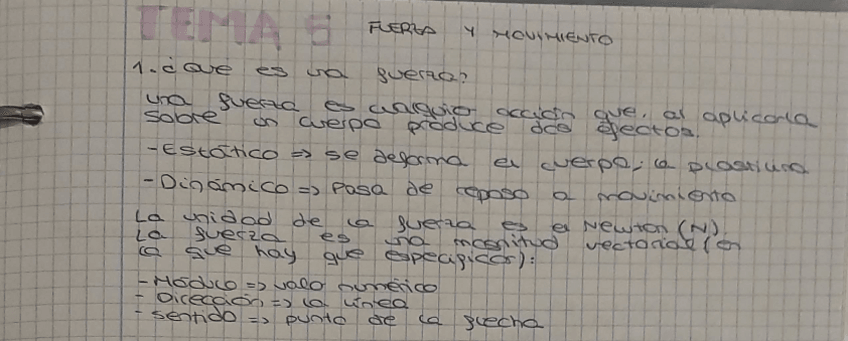 TEMA 5 FUERZA Y MOVIMIENTO
1. ¿Que es una fuerza?
una fuerza es cualquier acción que, al aplicarla
sobre un cuerpo produce dos efectos.
- Estático => se deforma el cuerpo, la plastilina
- Dinámico => Pasa de reposo a movimiento
La unidad de la fuerza es el Newton (N)
La fuerza es una magnitud vectorial (en
la que hay que especificar):
- Módulo => valo numérico
- Dirección => la línea
- sentido => punto de la flecha